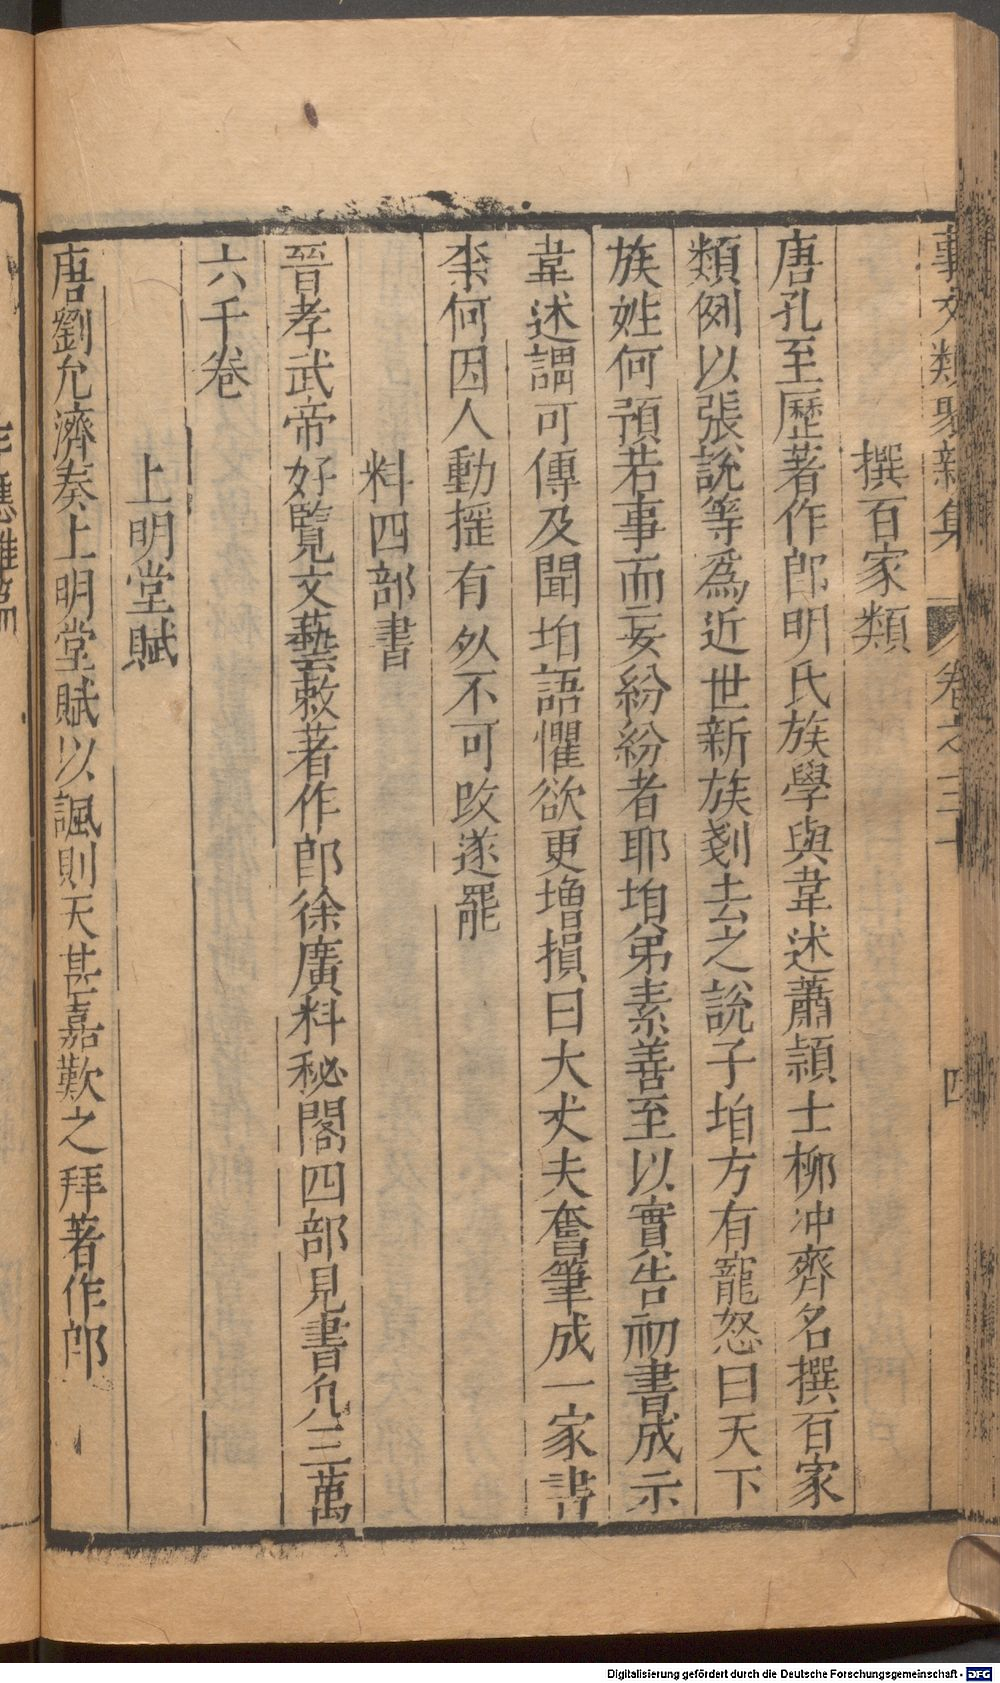 事文類聚新集 卷之三十 四
撰百家類
唐孔至歷著作郎明氏族學與韋述蕭頴士柳冲齊名撰百家
類例以張說等爲近世新族剗去之說子垍方有寵怒曰天下
族姓何預若事而妄紛紛者耶垍弟素善至以實告初書成示
韋述謂可傳及聞垍語懼欲更增損曰大丈夫奮筆成一家書
柰何因人動揺有死不可改遂罷
料四部書
晉孝武帝好覽文藝敕著作郎徐廣料秘閣四部見書凢三萬
六千卷
上明堂賦
唐劉允濟奏上明堂賦以諷則天甚嘉歎之拜著作郎
Digitalisierung gefördert durch die Deutsche Forschungsgemeinschaft - DFG